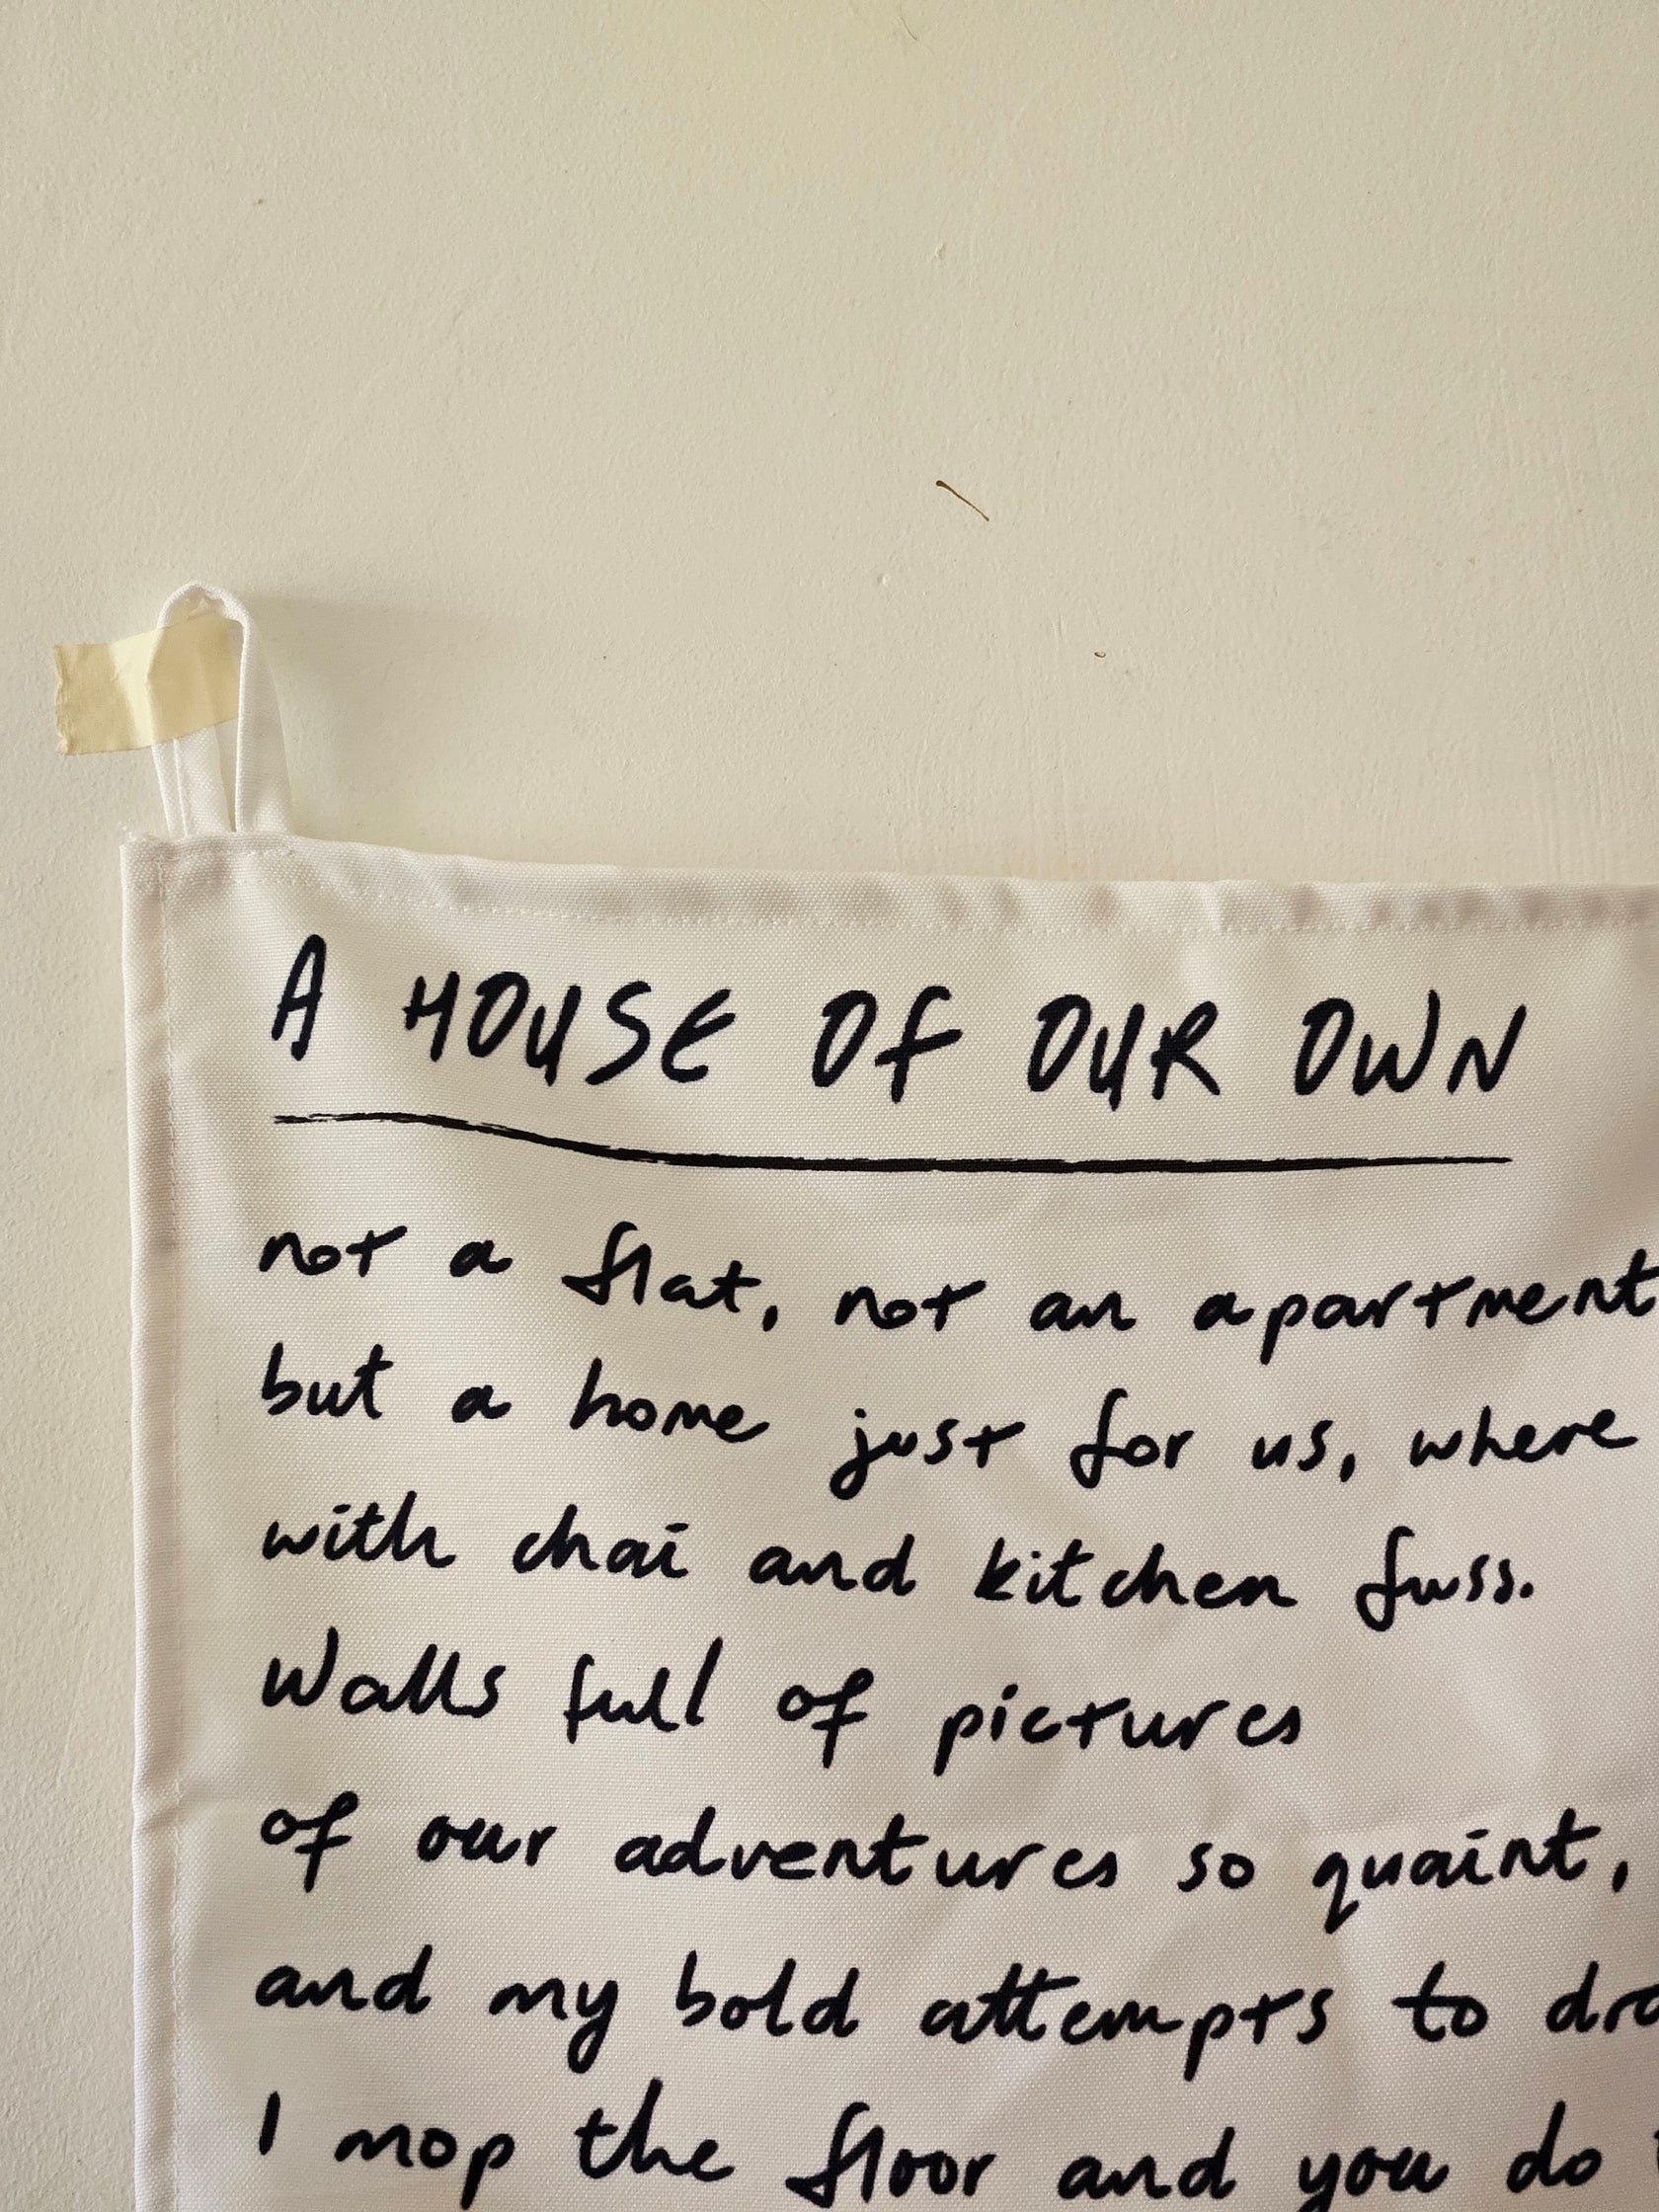 A HOUSE OF OUR OWN
not a flat, not an apartment
but a home just for us, where
with chai and kitchen fuss.
Walls full of pictures
of our adventures so quaint,
and my bold attempts to
I mop the floor and you do